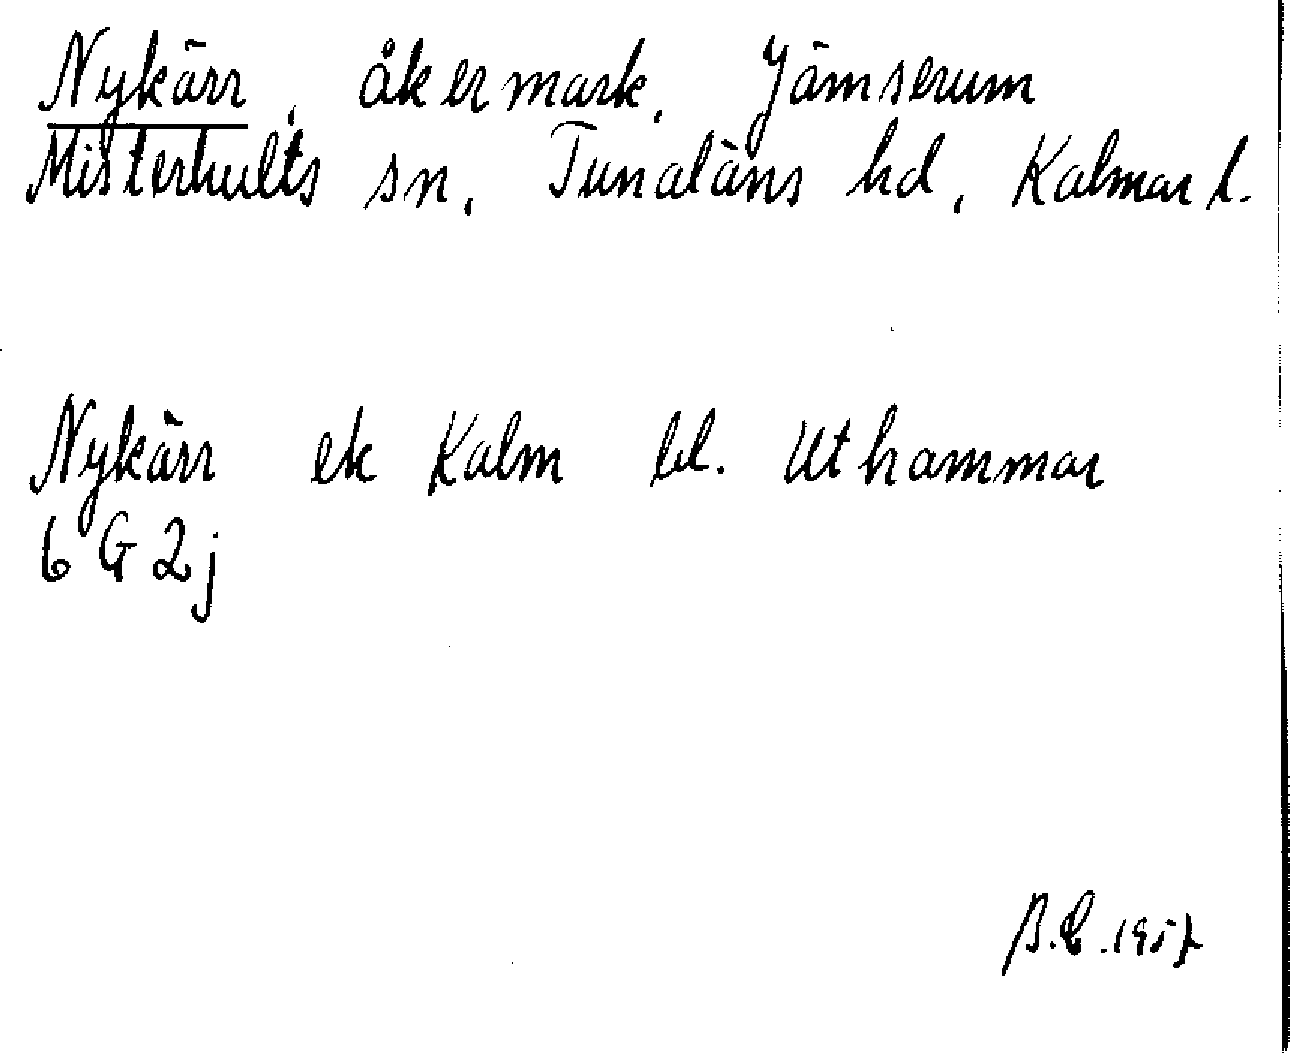 Nykärr, åkermark, Jämserum
Misterhults sn, Tunaläns hd, Kalmar l.
Nykärr ek Kalm bl. Uthammar
6 G 2 j
B.E. 1957